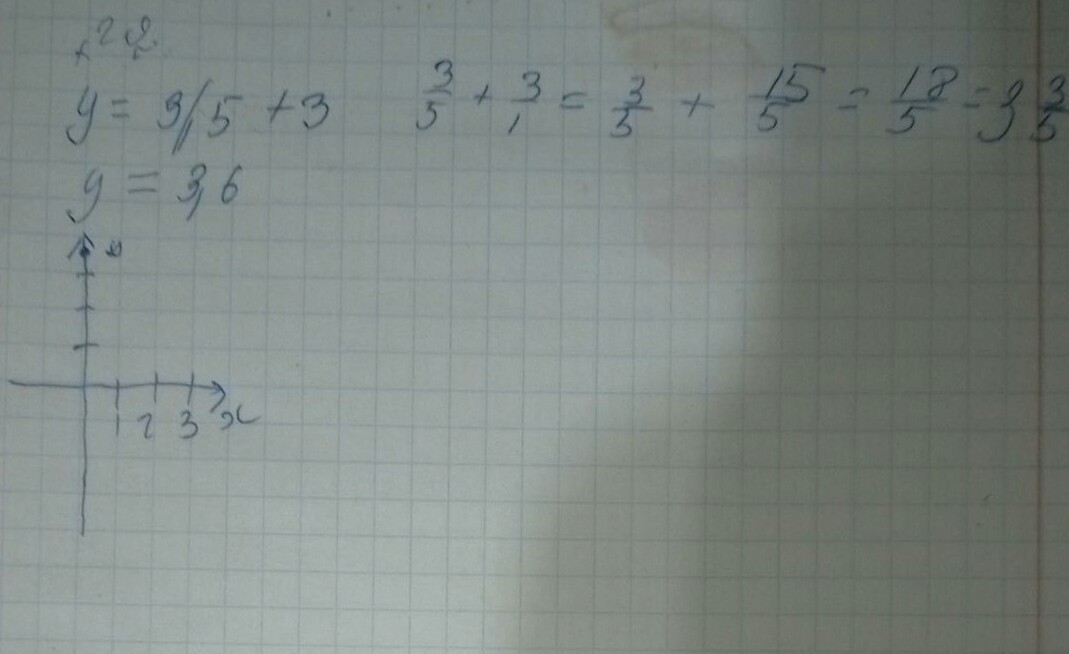 y = 3/5 + 3 3/5 + 3/1 = 3/5 + 15/5 = 18/5 = 3 3/5
y = 3,6
1 2 3 x